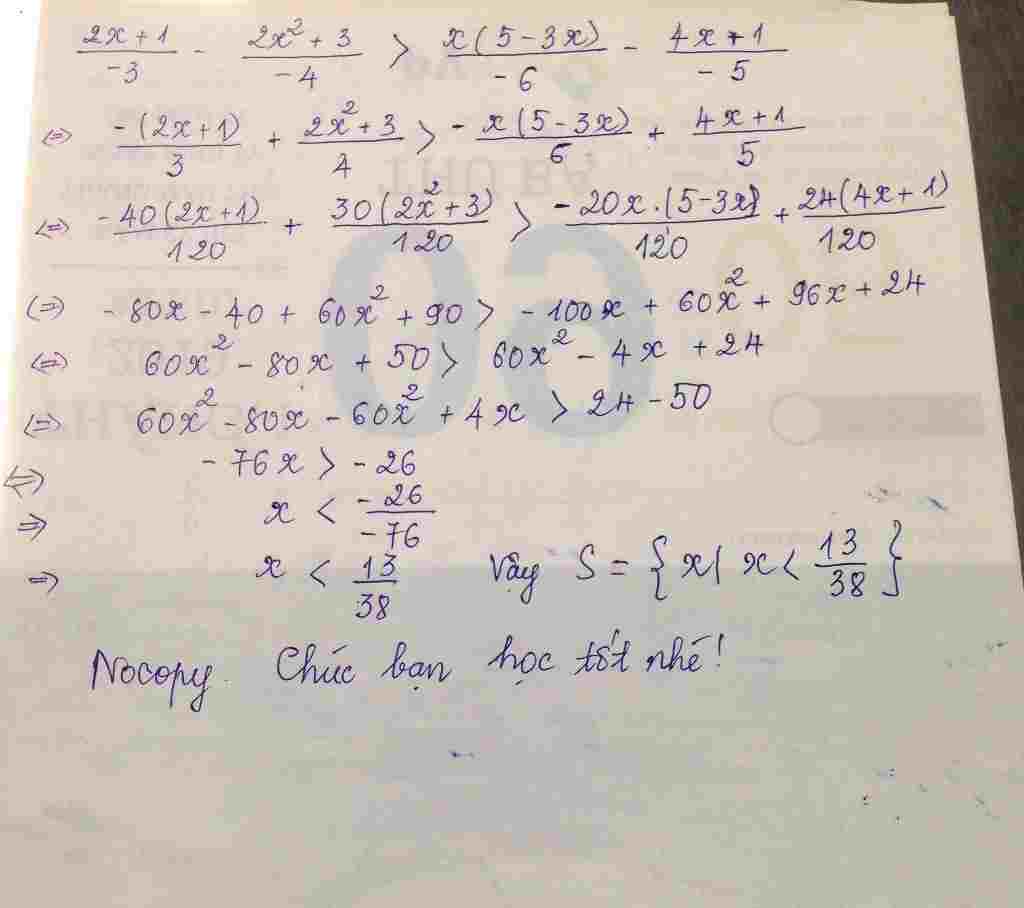 (2x+1)/-3 - (2x²+3)/-4 > x(5-3x)/-6 - (4x+1)/-5
⇔ -(2x+1)/3 + (2x²+3)/4 > - x(5-3x)/6 + (4x+1)/5
⇔ -40(2x+1)/120 + 30(2x²+3)/120 > -20x.(5-3x)/120 + 24(4x+1)/120
⇔ -80x - 40 + 60x² + 90 > -100x + 60x² + 96x + 24
⇔ 60x² - 80x + 50 > 60x² - 4x + 24
⇔ 60x² - 80x - 60x² + 4x > 24 - 50
⇔ -76x > -26
⇒ x < -26/-76
⇒ x < 13/38 Vậy S = {x| x < 13/38}
Nocopy. Chúc bạn học tốt nhé!